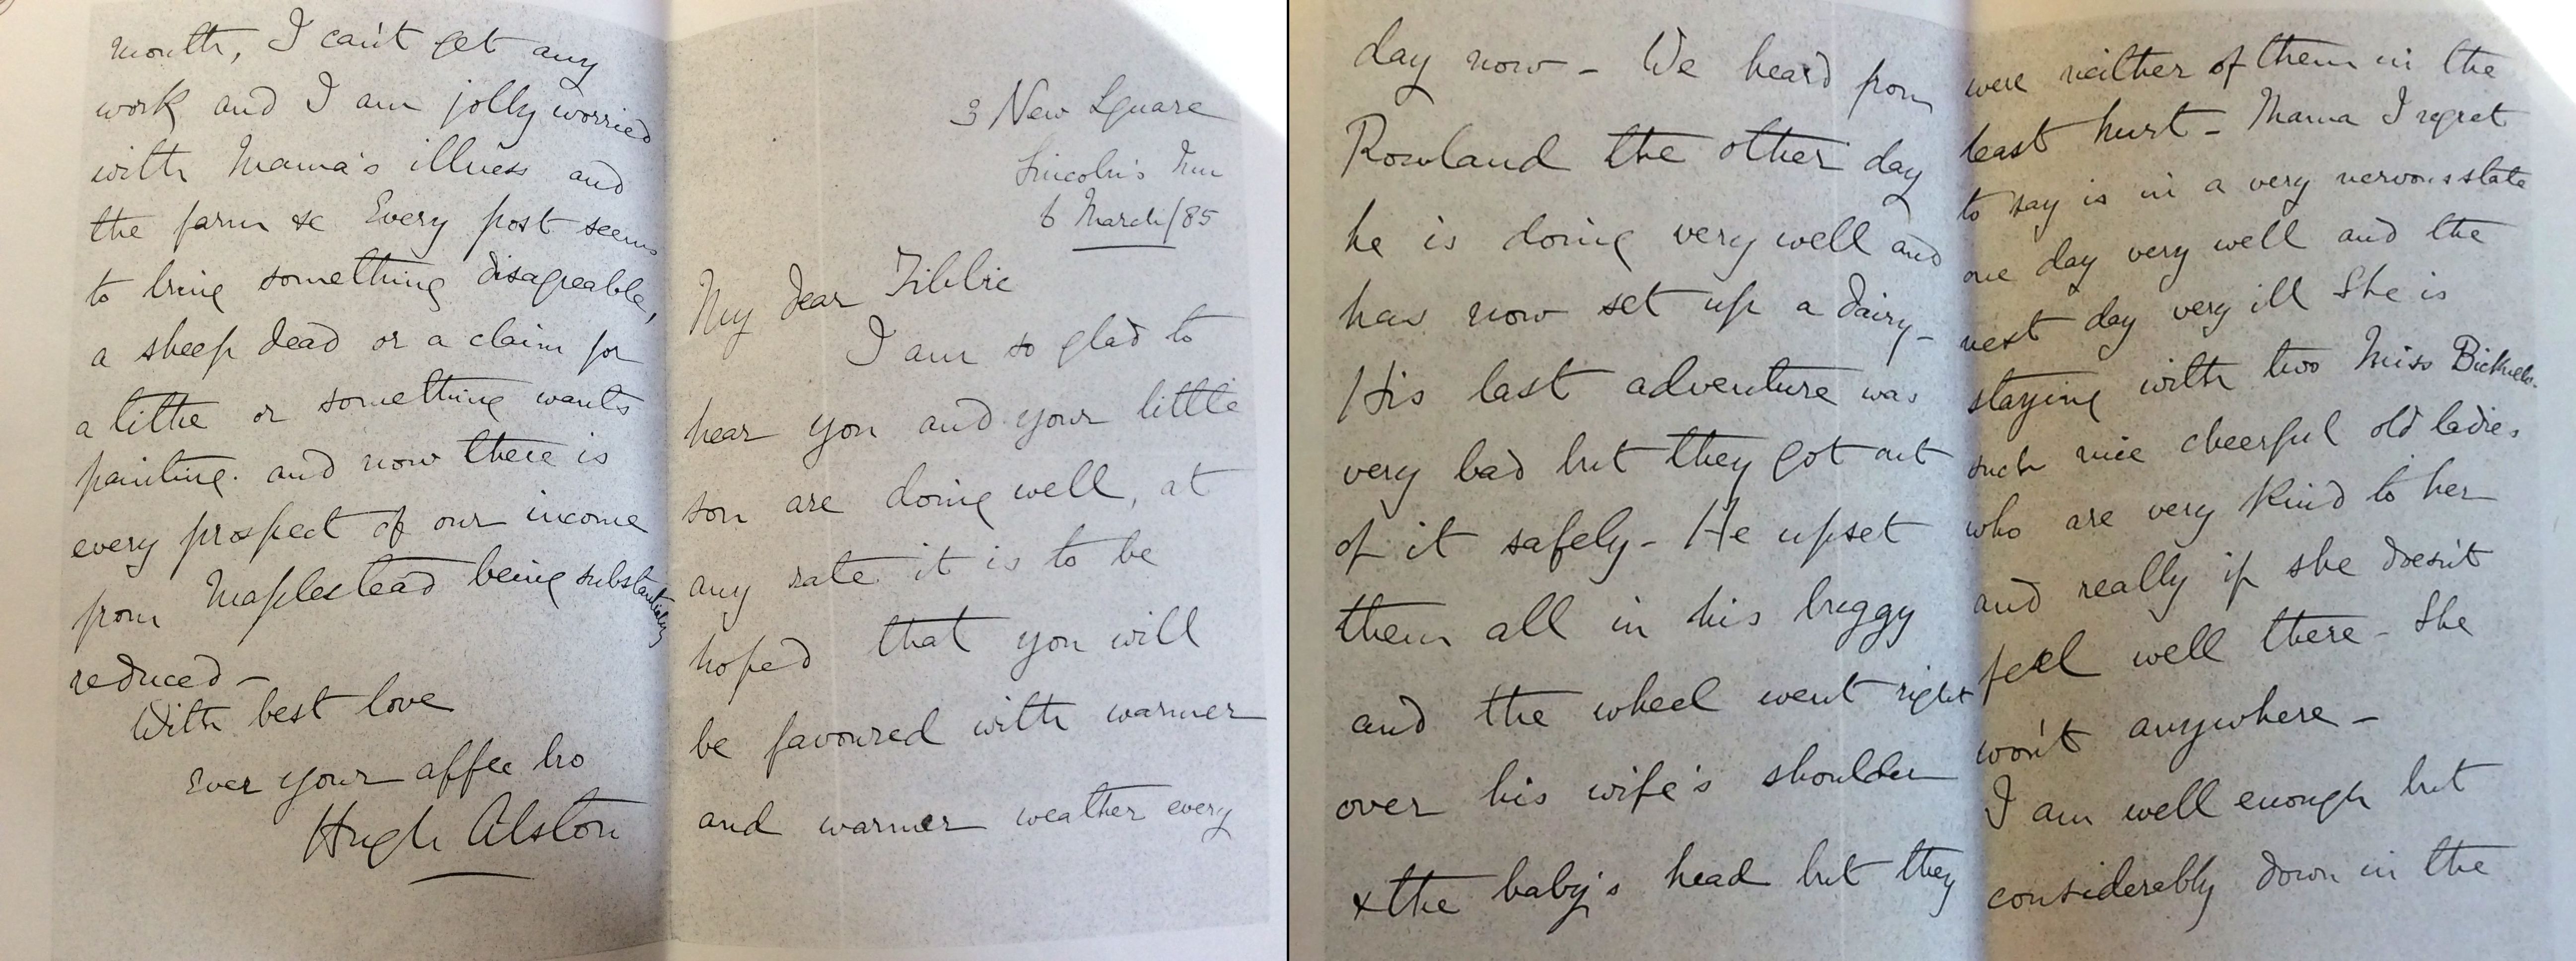 3 New Square
Lincoln's Inn
6 March/85
My dear Tibbie
I am so glad to
hear you and your little
son are doing well, at
any rate it is to be
hoped that you will
be favoured with warmer
and warmer weather every
day now - We heard from
Rowland the other day
he is doing very well and
has now set up a dairy -
His last adventure was
very bad but they got out
of it safely - He upset
them all in his buggy
and the wheel went right
over his wife's shoulder
& the baby's head but they
were neither of them in the
least hurt - Mama I regret
to say is in a very nervous state
one day very well and the
next day very ill She is
staying with two Miss Bicknells.
such nice cheerful old ladies
who are very kind to her
and really if she doesn't
feel well there - She
won't anywhere -
I am well enough but
considerably down in the
mouth, I can't get any
work and I am jolly worried
with Mama's illness and
the farm &c Every post seems
to bring something disagreable,
a sheep dead or a claim for
a tithe or something wants
painting. and now there is
every prospect of our income
from Maplestead being substantially
reduced -
With best love
Ever your affec bro
Hugh Alston